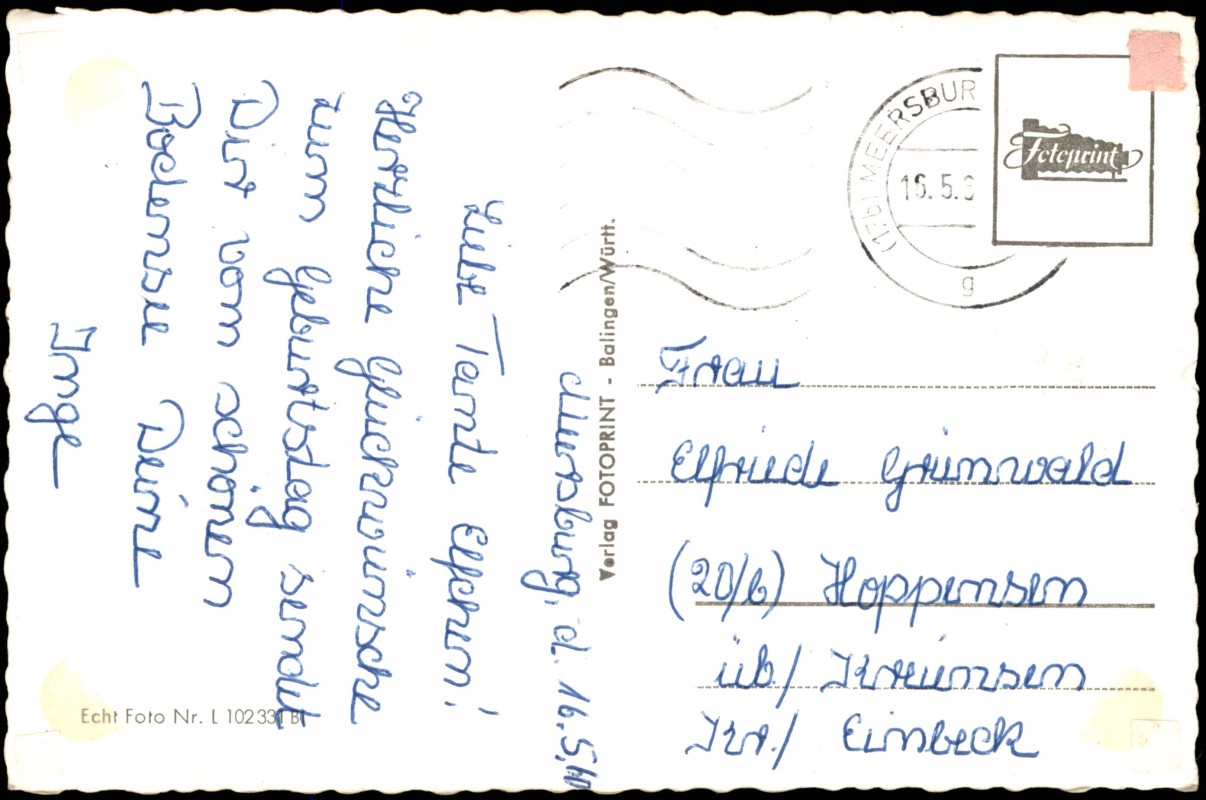 Meersburg, d. 16.5.60
Liebe Tante Elfchen!
Herzliche Glückwünsche
zum Geburtstag sendet
Dir vom schönen
Bodensee Deine
Inge
Echt Foto Nr. L 102331 Bl
Verlag FOTOPRINT - Balingen/Württ.
(17b) MEERSBUR
16.5.6
g
Fotoprint
Frau
Elfriede Grünwald
(20/b) Hoppensen
üb./ Kreiensen
Krs./ Einbeck